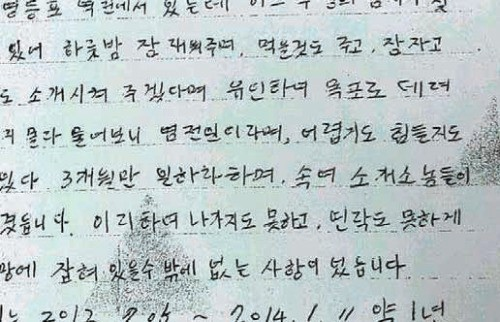 영등포 역전에서 있는데
있어 하룻밤 잠 재워주며, 먹을것도 주고, 잠자고
도 소개시켜 주겠다며 유인하여 목포로 데려
물어보니 염전일이라며, 어렵거도 힘들지도
있다 3개월만 일하라하며, 속여 소개소놈들이
겼습니다. 이리하여 나가지도 못하고, 연락도 못하게
망에 잡혀 있을수 밖에 없는 사항이 었습니다
는 2012 ~ 2014. 1. 약 1년